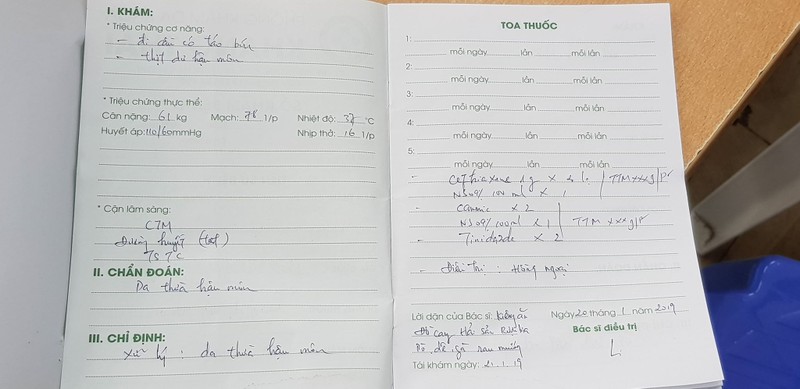 I. KHÁM:
* Triệu chứng cơ năng:
- đi cầu có táo bón
- thịt dư hậu môn
* Triệu chứng thực thể:
Cân nặng: 61 kg Mạch: 78 l/p Nhiệt độ: 37 °C
Huyết áp: 110/60mmHg Nhịp thở: 16 l/p
* Cận lâm sàng:
CTM
Đường huyết
TS TC
II. CHẨN ĐOÁN:
Da thừa hậu môn
III. CHỈ ĐỊNH:
Xử lý : da thừa hậu môn
TOA THUỐC
1:
mỗi ngày lần mỗi lần
2:
mỗi ngày lần mỗi lần
3:
mỗi ngày lần mỗi lần
4:
mỗi ngày lần mỗi lần
5:
mỗi ngày lần mỗi lần
1g x TTM xxx g/p
100 ml x 1
x 2
100ml x 1 TTM xxx g/p
- x 2
- Điều trị : Hồng ngoại
Lời dặn của Bác sĩ: kiêng ăn Ngày 20 tháng 1 năm 2019
Đồ cay Hải sản Bác sĩ điều trị
Bò, dê, gà rau muống
Tái khám ngày: 2 . 1 . 19